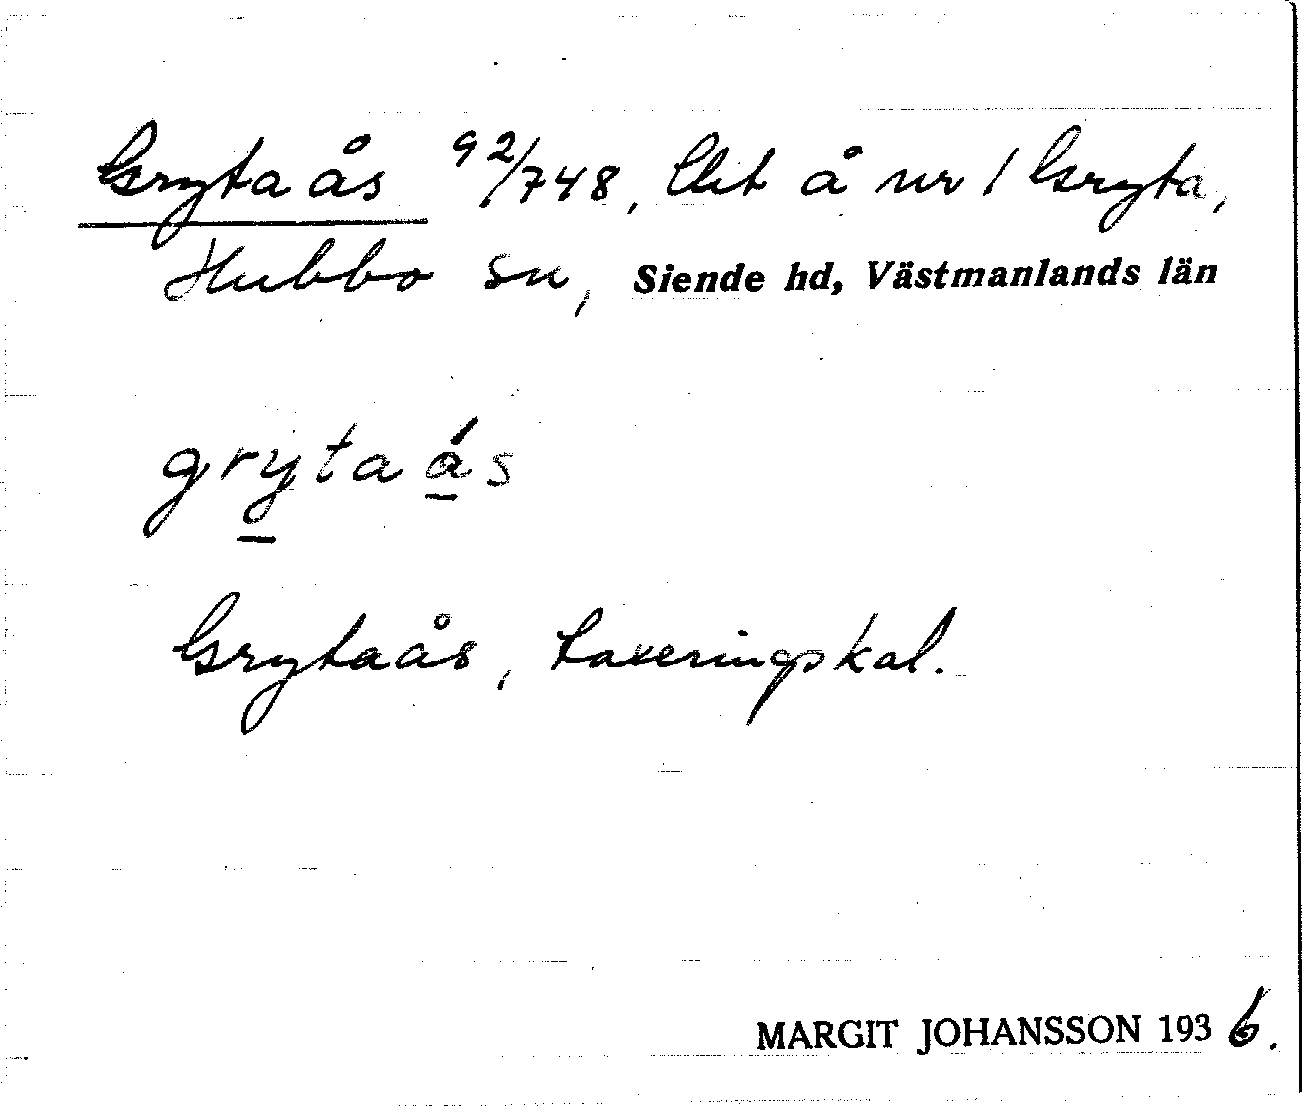 Grytaås 92/748, Lht å nr 1 Gryta,
Hubbo sn, Siende hd, Västmanlands län
grytaás
Grytaås, Taxeringskal.
MARGIT JOHANSSON 1936.